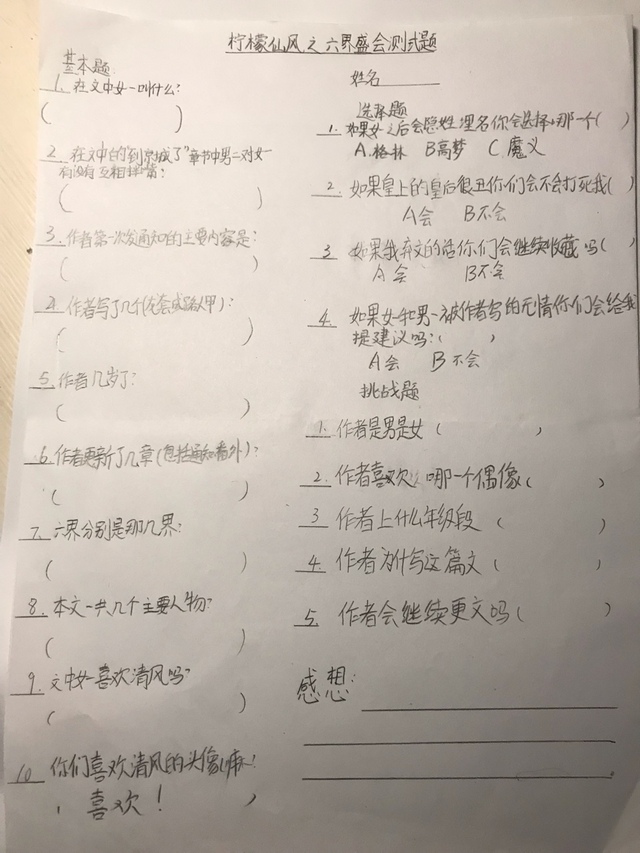 柠檬仙风之六界盛会测试题
基本题
1. 在文中女一叫什么?
( )
2. 在文中的"到京城了"章节中男二对女一
有没有互相
( )
3. 作者第一次发通知的主要内容是:
( )
4. 作者写了几个(龙套或路人甲):
( )
5. 作者几岁了:
( )
6. 作者更新了几章(包括通知番外):
( )
7. 六界分别是那几界:
( )
8. 本文一共几个主要人物:
( )
9. 文中女一喜欢清风吗:
( )
10 你们喜欢清风的头像嘛:
( 喜欢! )
姓名
选择题
1. 如果女一之后会隐姓埋名你会选择那一个( )
A.格林 B高梦 C.魔义
2. 如果皇上的皇后很丑你们会不会打死我( )
A会 B不会
3 如果我弃文的话你们会继续收藏吗( )
A会 B不会
4. 如果女一和男一被作者写的无情你们会给我
提建议吗:( )
A会 B不会
挑战题
1. 作者是男是女( )
2. 作者喜欢哪一个偶像( )
3 作者上什么年级段( )
4 作者为什写这篇文( )
5. 作者会继续更文吗( )
感想: